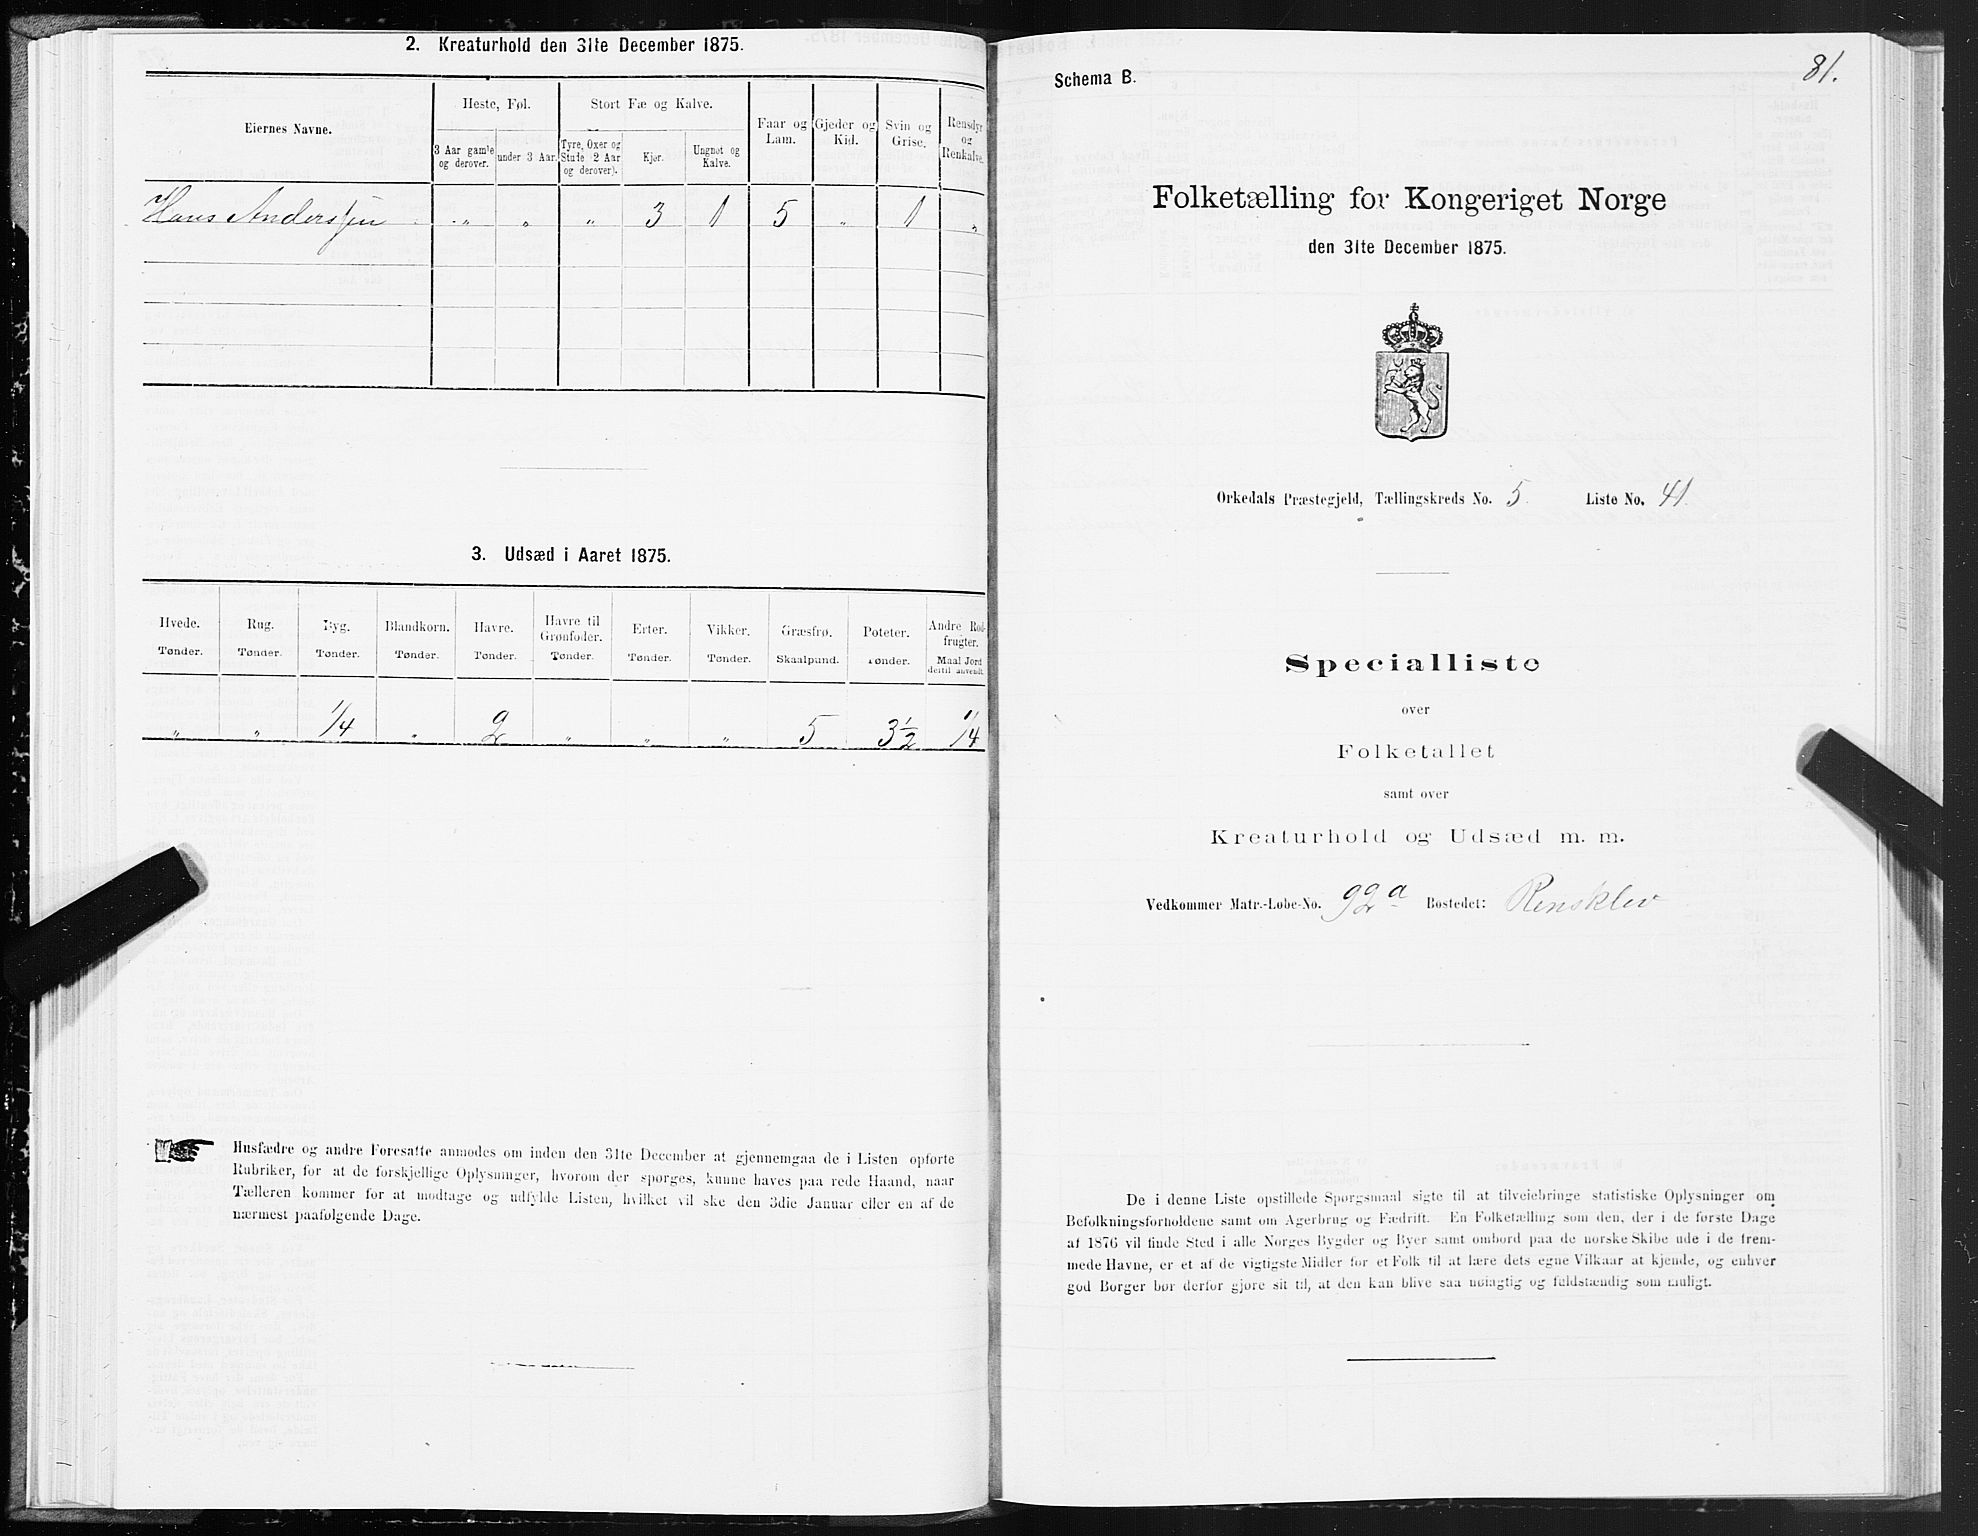 2. Kreaturhold den 31te December 1875.
Eiernes Navne.
Heste, Føl.
Stort Fæ og Kalve.
Faar og Lam.
Gjeder og Kid.
Svin og Grise.
Rensdyr og Renkalve.
3 Aar gamle og derover.
under 3 Aar.
Tyre, Oxer og Stude (2 Aar og derover).
Kjør.
Ungnøt og Kalve.
Hans Anderssen " " " 3 1 5 " 1 "
3. Udsæd i Aaret 1875.
Hvede. Rug. Byg. Blandkorn. Havre. Havre til Grønfoder. Erter. Vikker. Græsfrø. Poteter. Andre Rodfrugter.
Tønder. Tønder. Tønder. Tønder. Tønder. Tønder. Tønder. Tønder. Skaalpund. Tønder. Maal Jord dertil anvendt.
" " 1/4 " 2 " " " 5 3 1/2 1/4
Husfædre og andre Foresatte anmodes om inden den 31te December at gjennemgaa de i Listen opførte
Rubriker, for at de forskjellige Oplysninger, hvorom der spørges, kunne haves paa rede Haand, naar
Tælleren kommer for at modtage og udfylde Listen, hvilket vil ske den 3die Januar eller en af de
nærmest paafølgende Dage.
81.
Schema B.
Folketælling for Kongeriget Norge
den 31te December 1875.
Orkedals Præstegjeld, Tællingskreds No. 5. Liste No. 41.
Specialliste
over
Folketallet
samt over
Kreaturhold og Udsæd m. m.
Vedkommer Matr.-Løbe-No. 92a Bostedet: Rensklev
De i denne Liste opstillede Spørgsmaal sigte til at tilveiebringe statistiske Oplysninger om
Befolkningsforholdene samt om Agerbrug og Fædrift. En Folketælling som den, der i de første Dage
af 1876 vil finde Sted i alle Norges Bygder og Byer samt ombord paa de norske Skibe ude i de frem-
mede Havne, er et af de vigtigste Midler for et Folk til at lære dets egne Vilkaar at kjende, og enhver
god Borger bør derfor gjøre sit til, at den kan blive saa nøiagtig og fuldstændig som muligt.